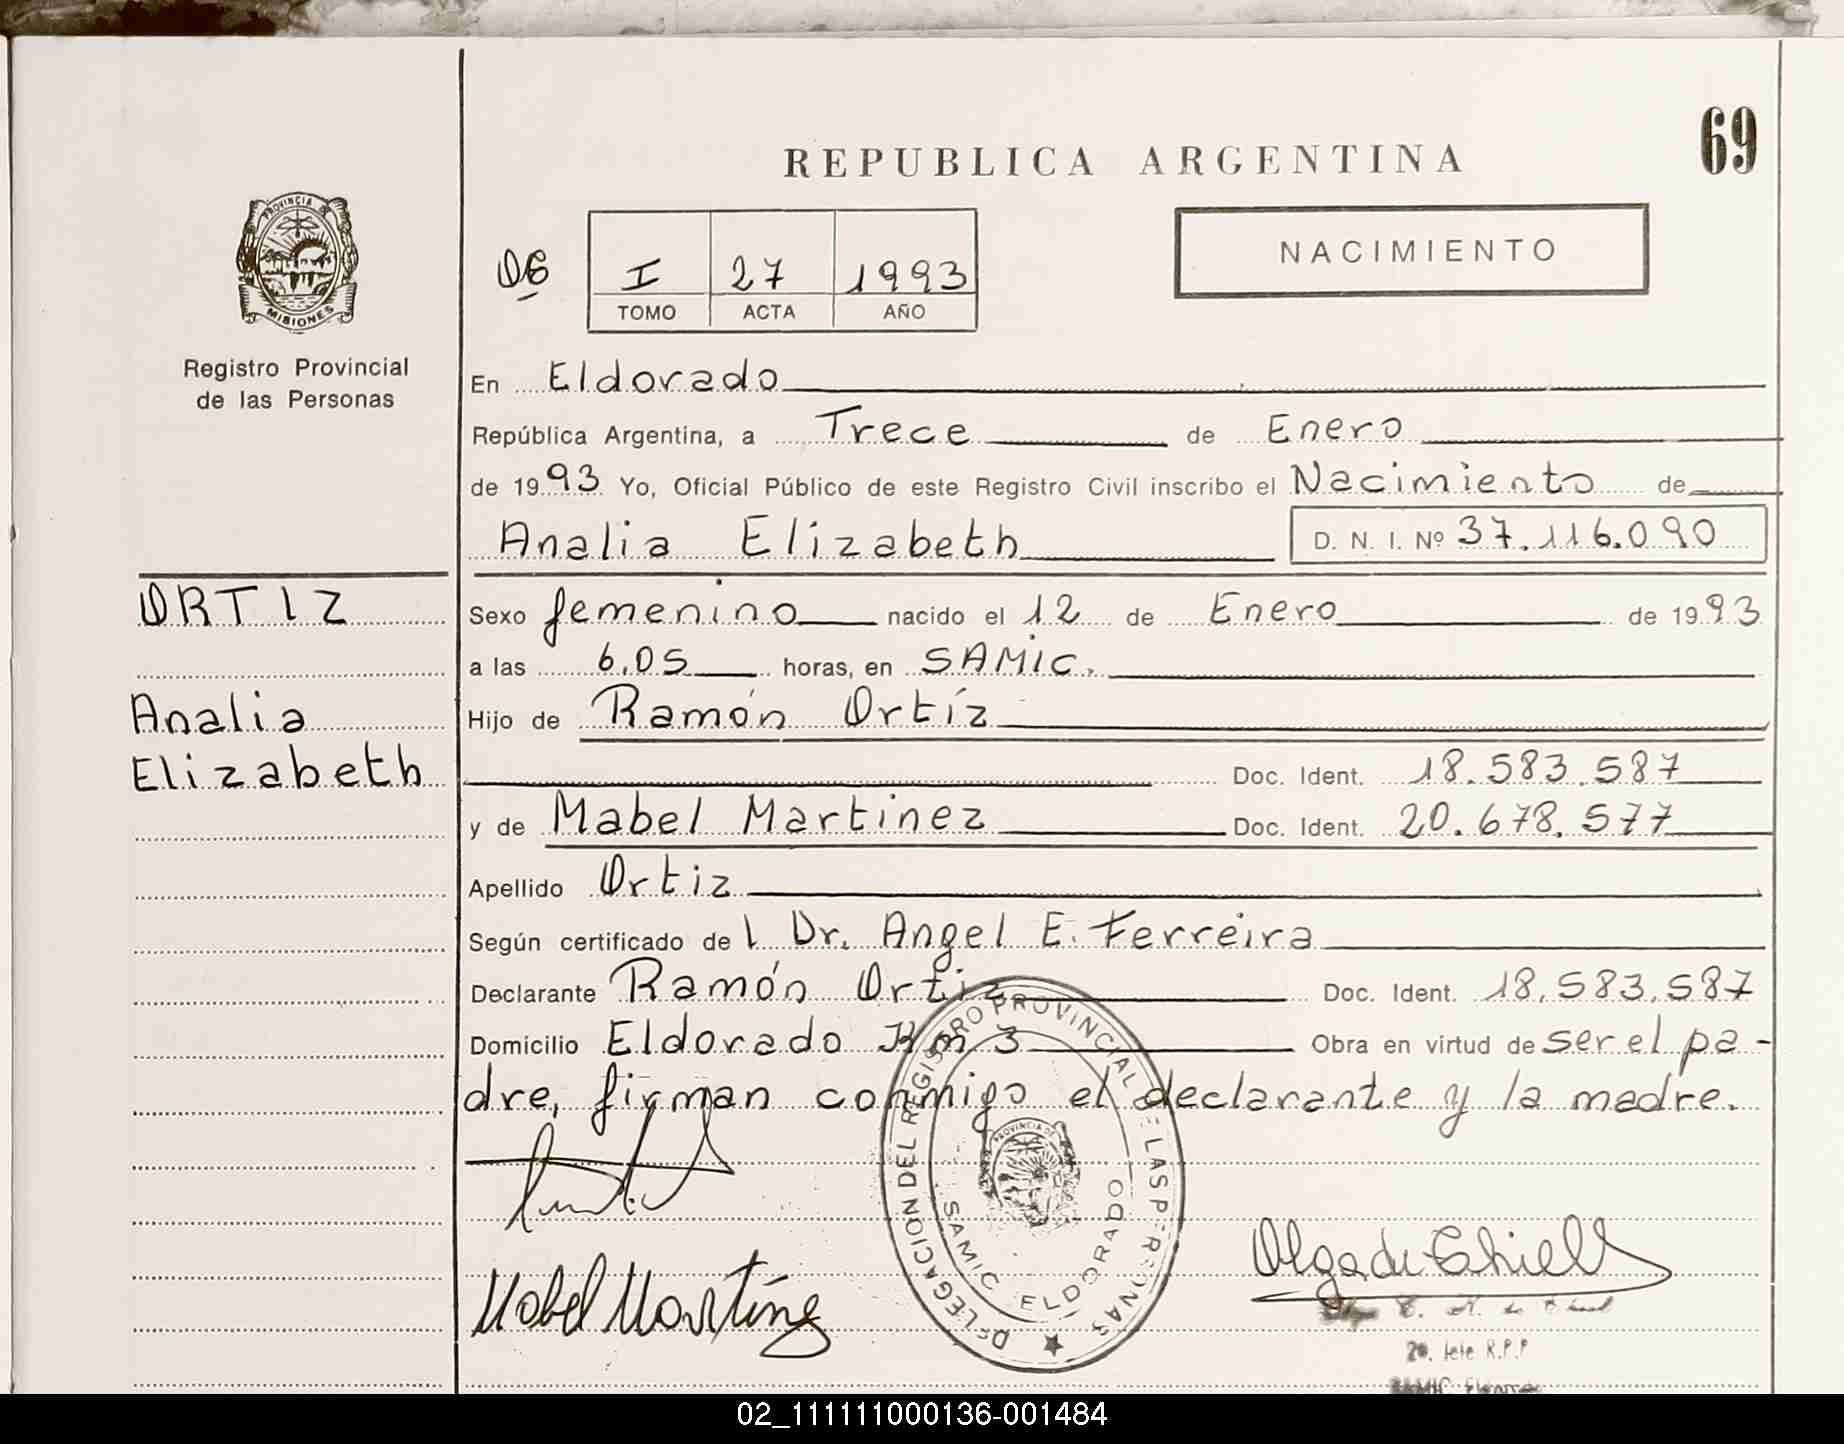 69
REPUBLICA ARGENTINA
PROVINCIA DE
MISIONES
Registro Provincial
de las Personas
06 I 27 1993
TOMO ACTA AÑO
NACIMIENTO
En Eldorado
República Argentina, a Trece de Enero
de 1993 Yo, Oficial Público de este Registro Civil inscribo el Nacimiento de
Analia Elizabeth D. N. I. Nº 37.116.090
ORTIZ
Analia
Elizabeth
Sexo femenino nacido el 12 de Enero de 1993
a las 6.05 horas, en SAMIC.
Hijo de Ramón Ortíz
Doc. Ident. 18.583.587
y de Mabel Martinez Doc. Ident. 20.678.577
Apellido Ortiz
Según certificado del Dr. Angel E. Ferreira
Declarante Ramón Ortiz Doc. Ident. 18.583.587
Domicilio Eldorado Km 3 Obra en virtud de ser el pa-
dre, firman conmigo el declarante y la madre.
DELEGACION DEL REGISTRO PROVINCIAL DE LAS PERSONAS
PROVINCIA DE
SAMIC ELDORADO
Mabel Martínez
Olga de
2º. Jefe R.P.P
SAMIC
02_111111000136-001484